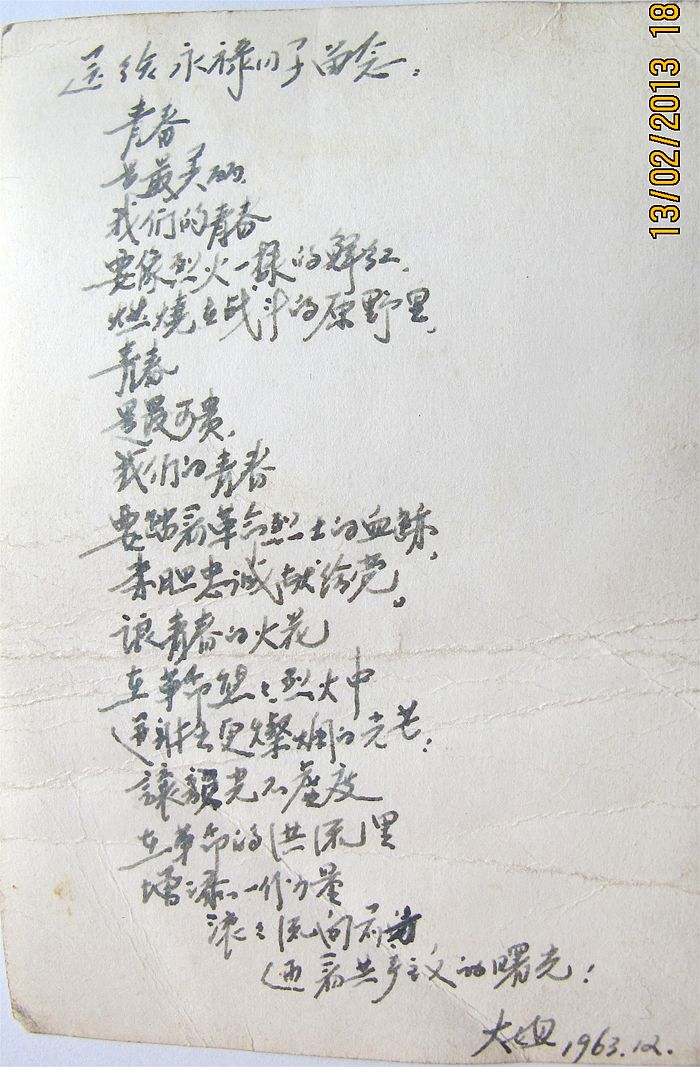 送给永禄川子留念:
青春
是最美丽,
我们的青春
要像烈火一样的鲜红,
燃燒在战斗的原野里,
青春
是最可贵,
我们的青春
要踏着革命烈士的血跡,
赤胆忠诚献给党。
讓青春的火花
在革命熊〻烈火中
迸射出更燦烂的光芒;
讓韶光不虚度
在革命的洪流里
增添一份力量
滚〻流向前方
迎着共产主义的曙光!
大姐 1963.12.
13/02/2013 18